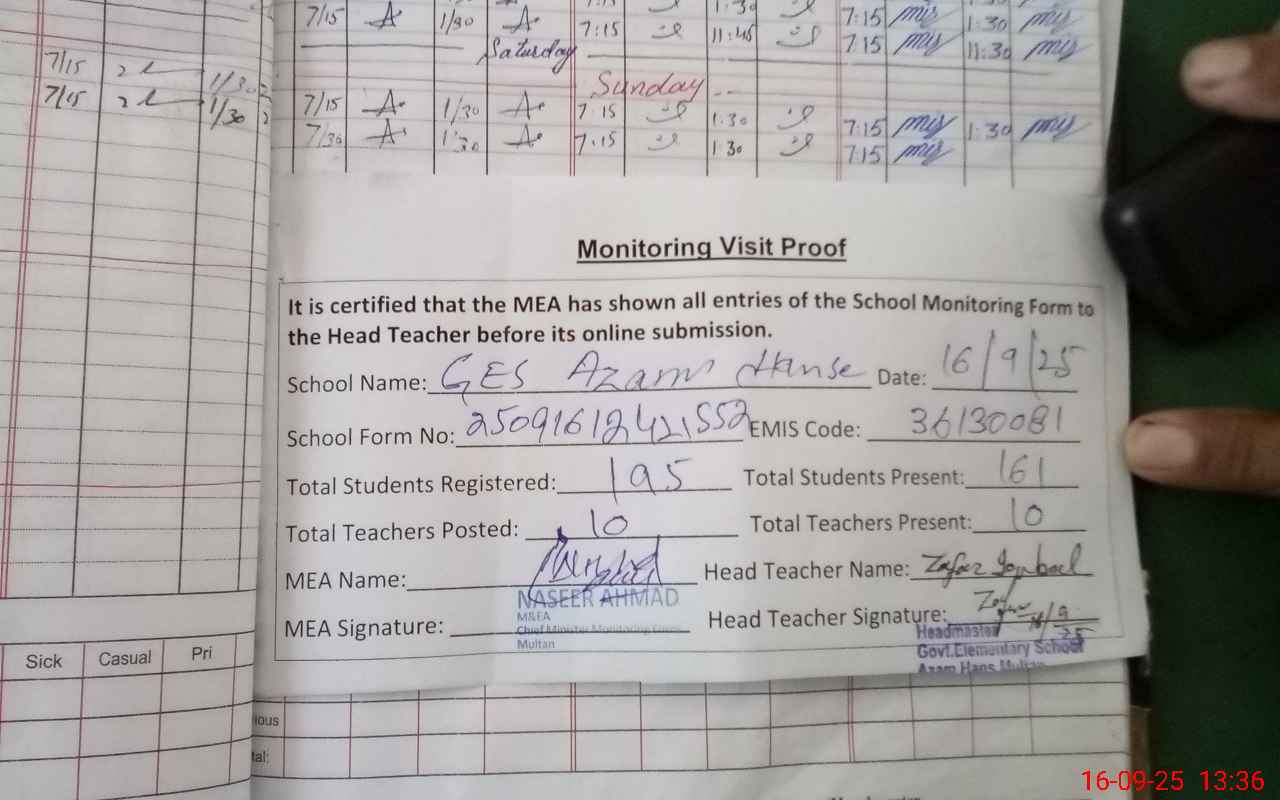 7/15 1/30 7:15 1:30 7:15 1:30
7:15 11:45 7:15 11:30
Saturday
7/15 1/30
Sunday
7/15 1/30 7/15 A 1/30 A 7:15 1:30 7:15 1:30
7/30 A 1:30 A 7:15 1:30 7:15
Monitoring Visit Proof
It is certified that the MEA has shown all entries of the School Monitoring Form to
the Head Teacher before its online submission.
School Name: GES Azam Hanse Date: 16/9/25
School Form No: 25091612421552 EMIS Code: 36130081
Total Students Registered: 195 Total Students Present: 161
Total Teachers Posted: 10 Total Teachers Present: 10
MEA Name: Head Teacher Name: Zafar Iqubal
NASEER AHMAD
M&EA
Chief Minister Monitoring Force
Multan
MEA Signature: Head Teacher Signature:
Headmaster
Govt.Elementary School
Azam Hans Multan
Sick Casual Pri
ious
tal:
16-09-25 13:36